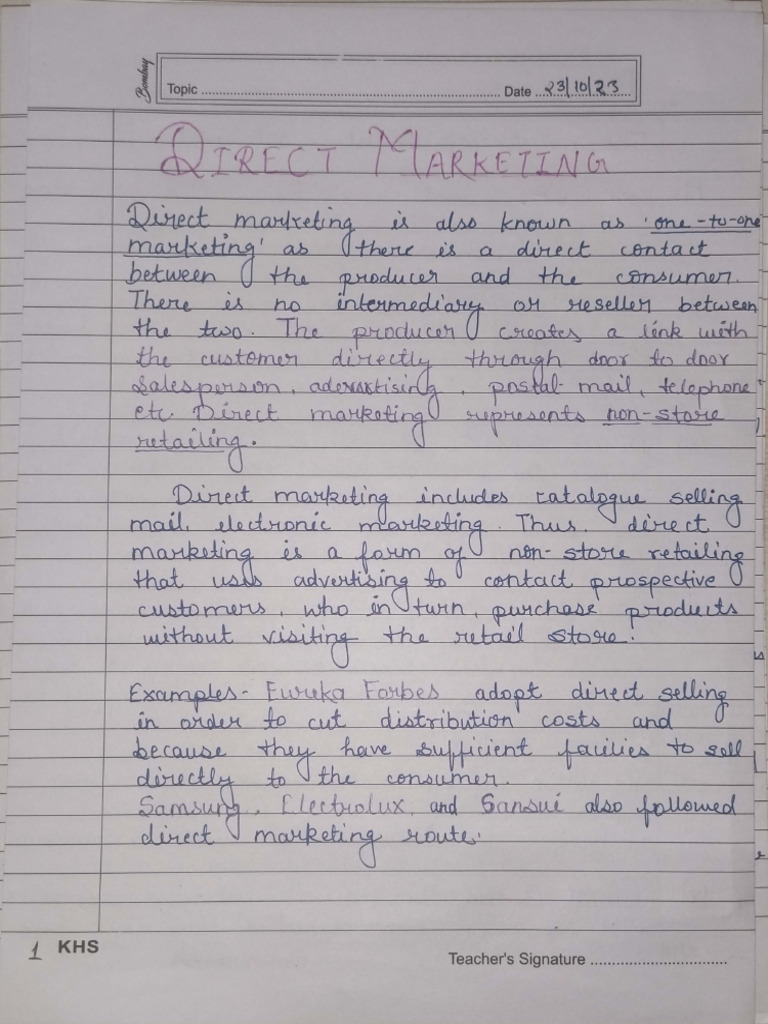 Bombay
Topic ........ Date 23/10/23
DIRECT MARKETING
Direct marketing is also known as 'one-to-one
marketing' as there is a direct contact
between the producer and the consumer.
There is no intermediary or reseller between
the two. The producer creates a link with
the customer directly through door to door
Salesperson, advertising, postal mail, telephone
etc. Direct marketing represents non-store
retailing.
Direct marketing includes catalogue selling
mail, electronic marketing. Thus, direct
marketing is a form of non-store retailing
that uses advertising to contact prospective
customers, who in turn, purchase products
without visiting the retail store.
Examples- Eureka Forbes adopt direct selling
in order to cut distribution costs and
because they have sufficient failies to sell
directly to the consumer.
Samsung, Electrolux, and Sansui also followed
direct marketing route.
1 KHS
Teacher's Signature ........